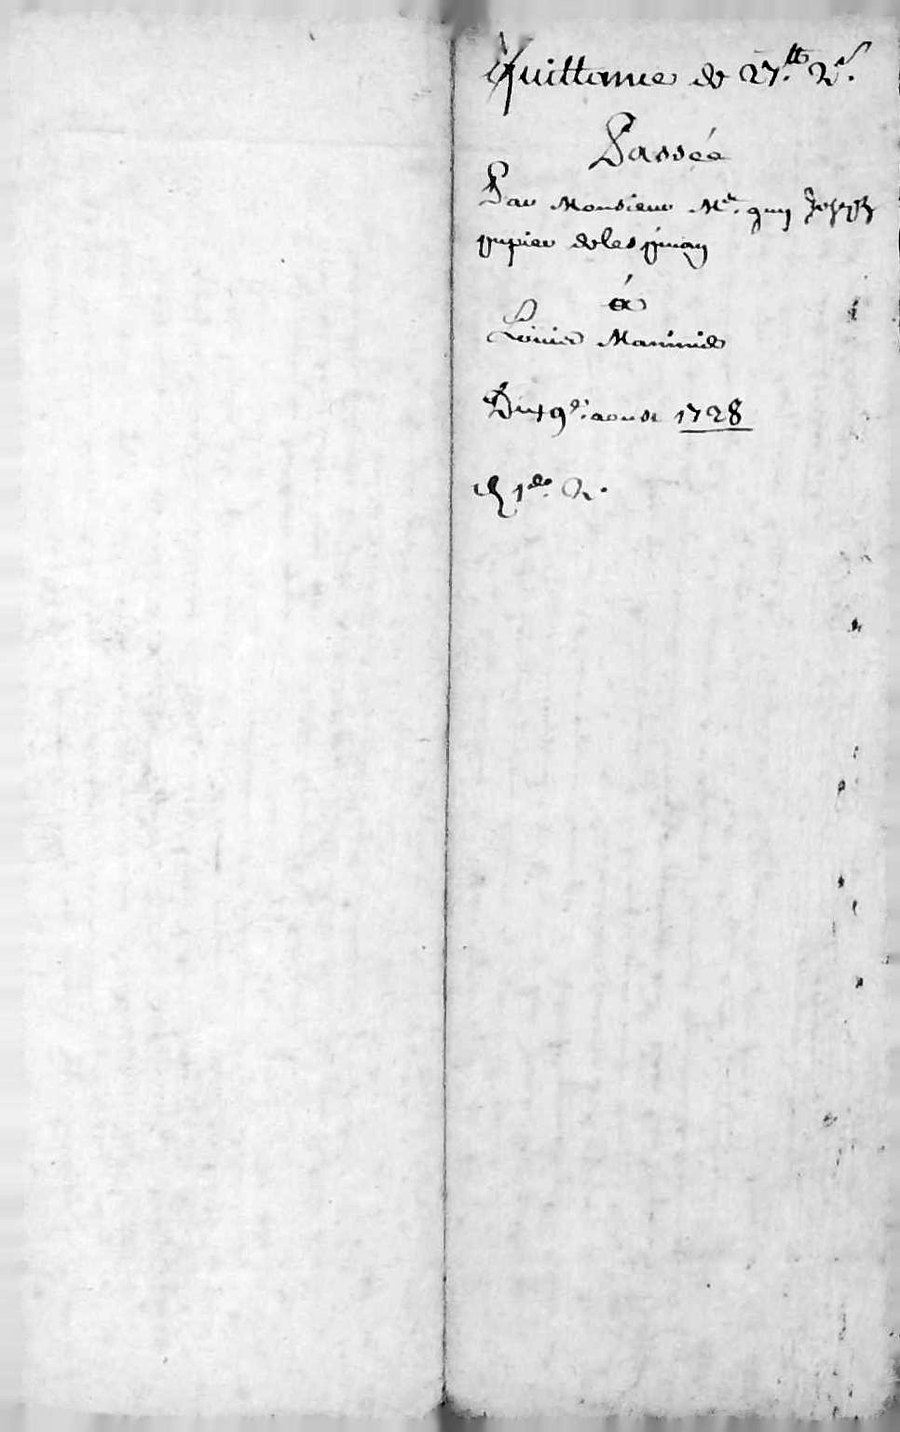 Quittance de 27.tt 2s.
Passée
Par Monsieur Me. guy Joseph
pupier delespinay
á
Louis Manimie
Du 19e. aoust 1728